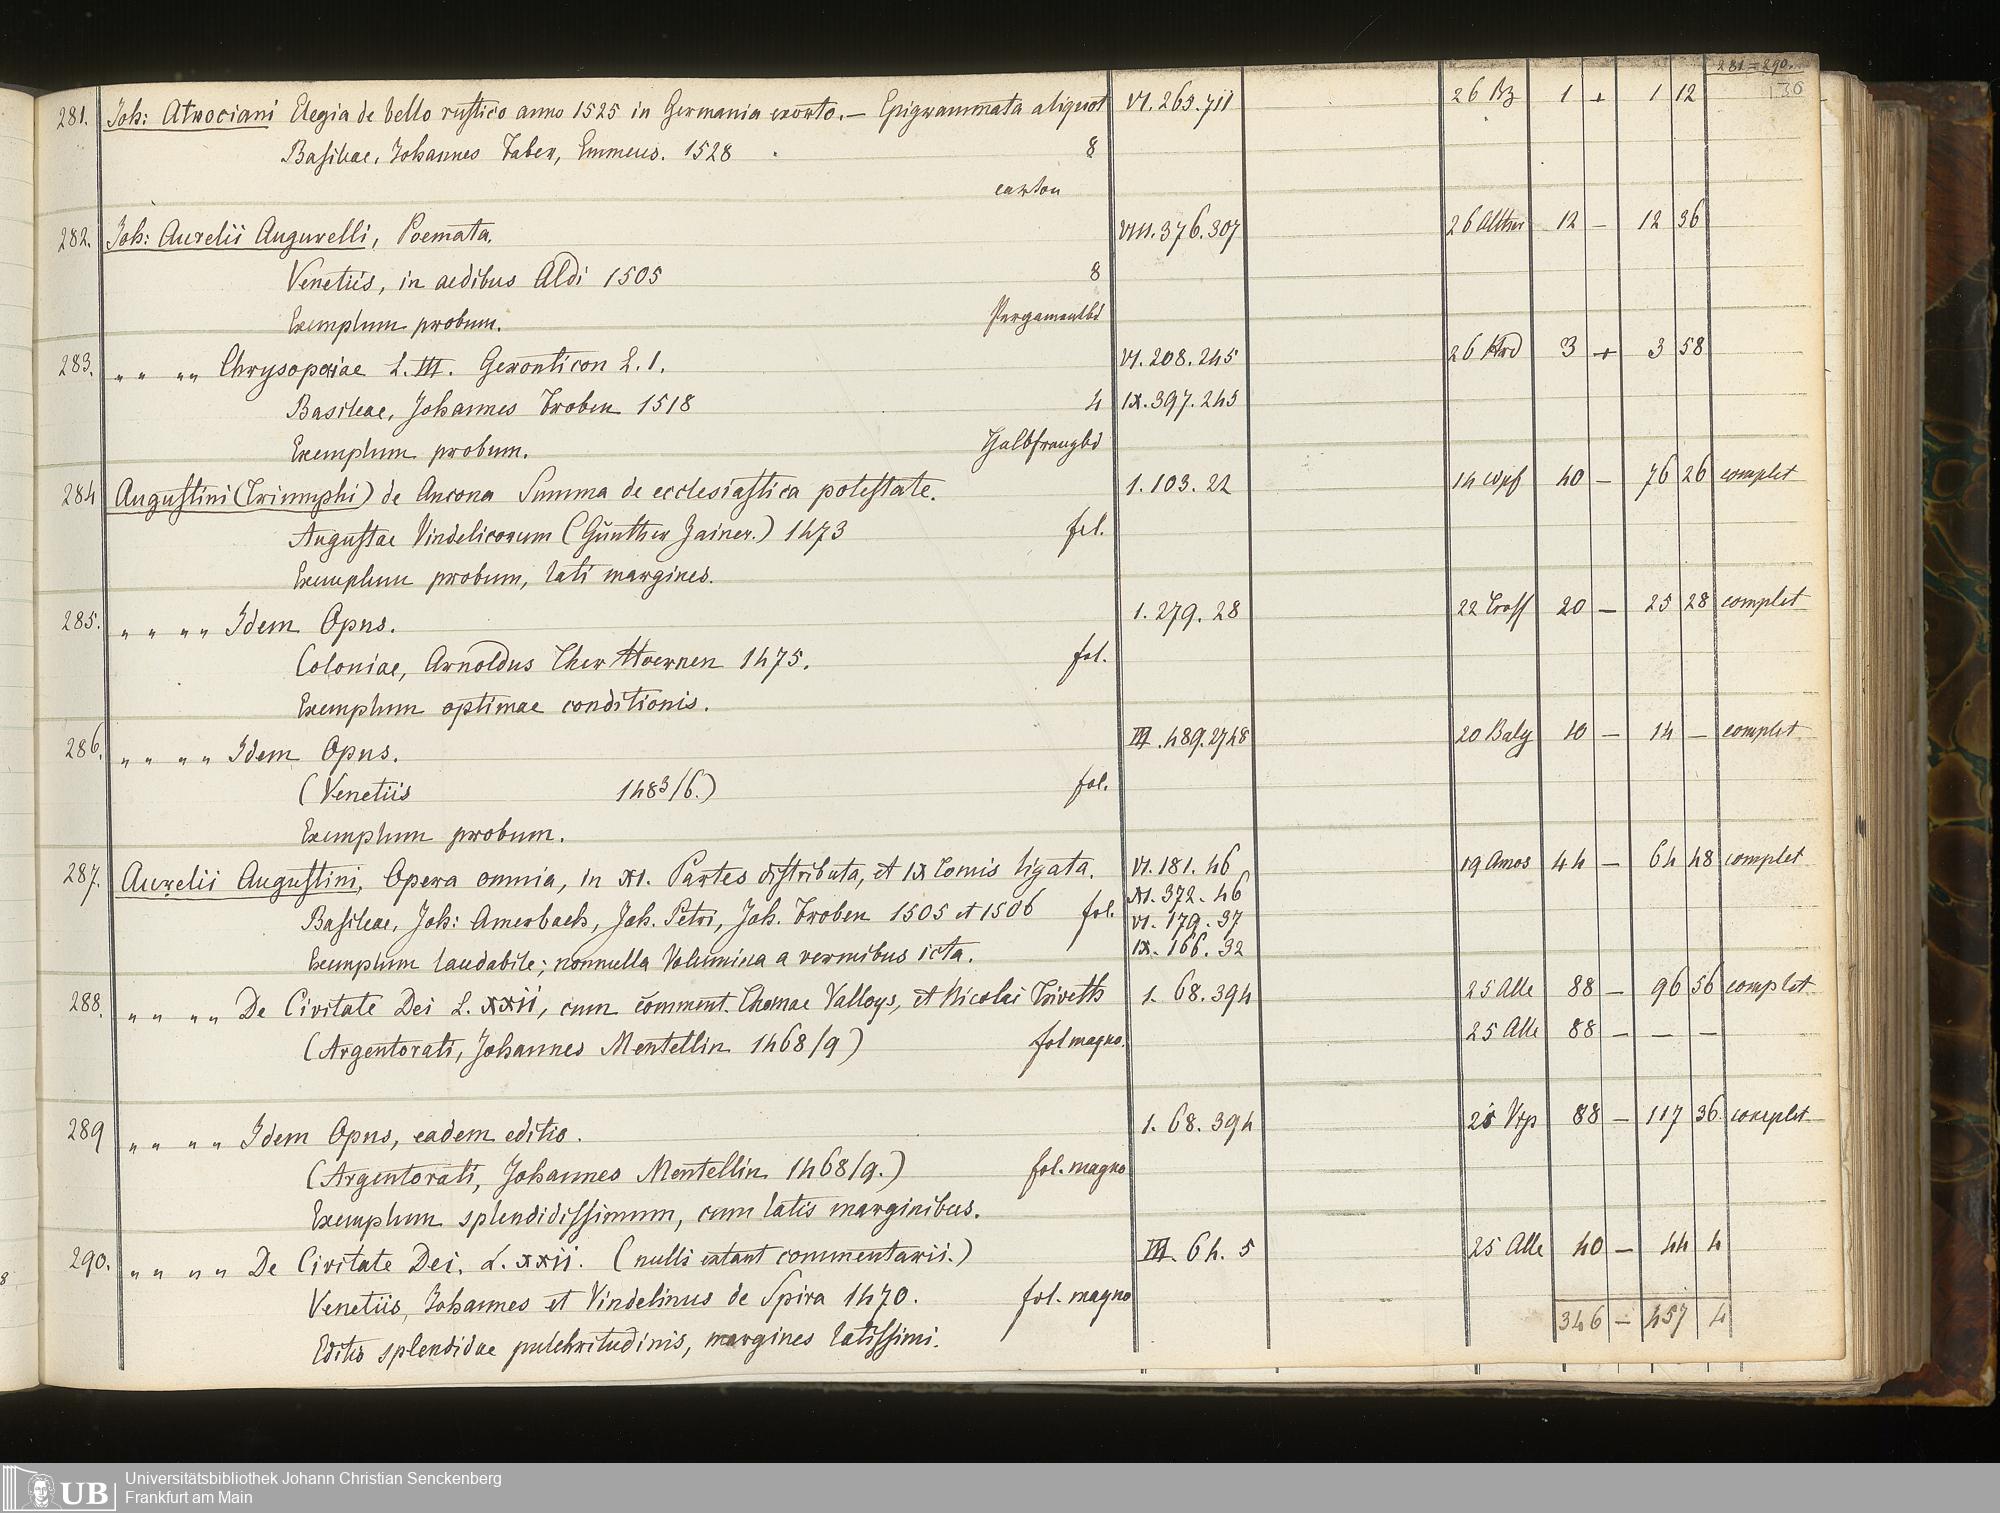 281 - 290.
136
281. Joh: Atrociani Elegia de bello rustico anno 1525 in Germania exorto. — Epigrammata aliquot VI. 263. 711 26 1 + 1 12
Basileae, Johannes Faber, Emmeus. 1528 8
carton
282. Joh: Aurelii Augurelli, Poemata. VIII. 376. 307 26 12 — 12 36
Venetiis, in aedibus Aldi 1505 8
Exemplum probum. Pergamentbd
283. " " " " Chrysopoeiae L. III. Geronticon L. 1. VI. 208. 245 26 3 + 3 58
Basileae, Johannes Froben 1518 4 IX. 397. 245
Exemplum probum. Halbfranzbd
284 Augustini (Triumphi) de Ancona Summa de ecclesiastica potestate. 1. 103. 22 14 40 — 76 26 complet
Augustae Vindelicorum (Günther Zainer.) 1473 fol.
Exemplum probum, lati margines.
285. " " " " Idem Opus. 1. 279. 28 22 Tross 20 — 25 28 complet
Coloniae, Arnoldus Ther Hoernen 1475. fol.
Exemplum optimae conditionis.
286. " " " " Idem Opus. III. 489. 2748 20 10 — 14 — complet
(Venetiis 1483/6.) fol.
Exemplum probum.
287. Aurelii Augustini, Opera omnia, in XI. Partes distributa, et IX Tomis ligata. VI. 181. 46 19 Amos 44 — 64 48 complet
XI. 372. 46
Basileae, Joh: Amerbach, Joh. Petri, Joh. Froben 1505 et 1506 fol. VI. 179. 37
Exemplum laudabile; nonnulla Volumina a vermibus icta. IX. 166. 32
288. " " " " De Civitate Dei L. xxii, cum comment. Thomae Valloys, et Nicolai Triveth 1. 68. 394 25 Alle 88 — 96 56 complet
(Argentorati, Johannes Mentellin 1468/9) fol magno. 25 Alle 88 — — —
289 " " " " Idem Opus, eadem editio. 1. 68. 394 88 — 117 36 complet
(Argentorati, Johannes Mentellin 1468/9.) fol. magno
Exemplum splendidissimum, cum latis marginibus.
290. " " " " De Civitate Dei. L. xxii. (nulli extant commentarii.) III. 64. 5 25 Alle 40 — 44 4
Venetiis, Johannes et Vindelinus de Spira 1470. fol. magno
346 — 457 4
Editio splendidae pulchritudinis, margines latissimi.
8
UB
Universitätsbibliothek Johann Christian Senckenberg
Frankfurt am Main